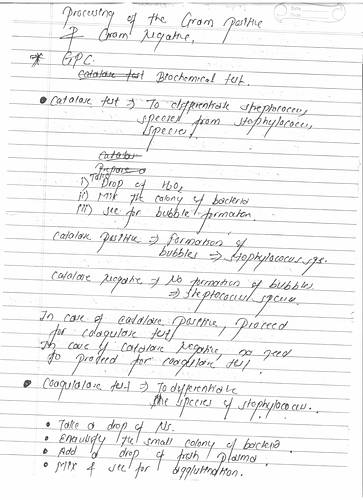 Processing of the Gram positive
& Gram Negative.
* GPC.
catalase test Biochemical test.
• Catalase test ⇒ To differentiate streptococcus
species from staphylococcus
species.
Catalas
Prepare a
i) Take Drop of H₂O₂
ii) Mix the colony of bacteria
iii) see for bubble formation.
Catalase positive ⇒ formation of
bubbles ⇒ staphylococcus spe.
Catalase Negative ⇒ No formation of bubbles
⇒ streptococcus
In case of catalase positive, proceed
for coagulase test
In case of catalase negative, no need
to proceed for coagulase test.
• Coagulase test ⇒ To differentiate
the species of staphylococcus.
• Take a drop of Ns.
• Emulsify the small colony of bacteria.
• Add a drop of fresh plasma.
• Mix & see for agglutination.